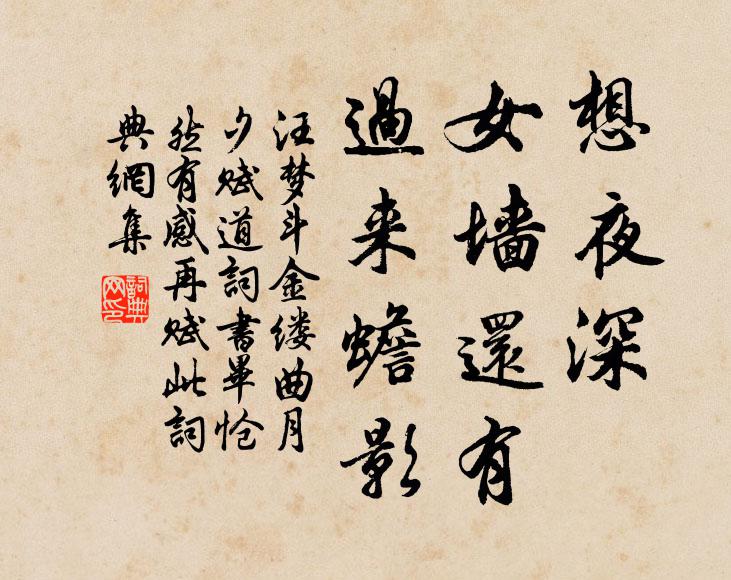 想夜深
女墙還有
過来蟾影
汪梦斗金缕曲月
夕赋道詞書畢怆
然有感再赋此詞
典網集
詞典
网印